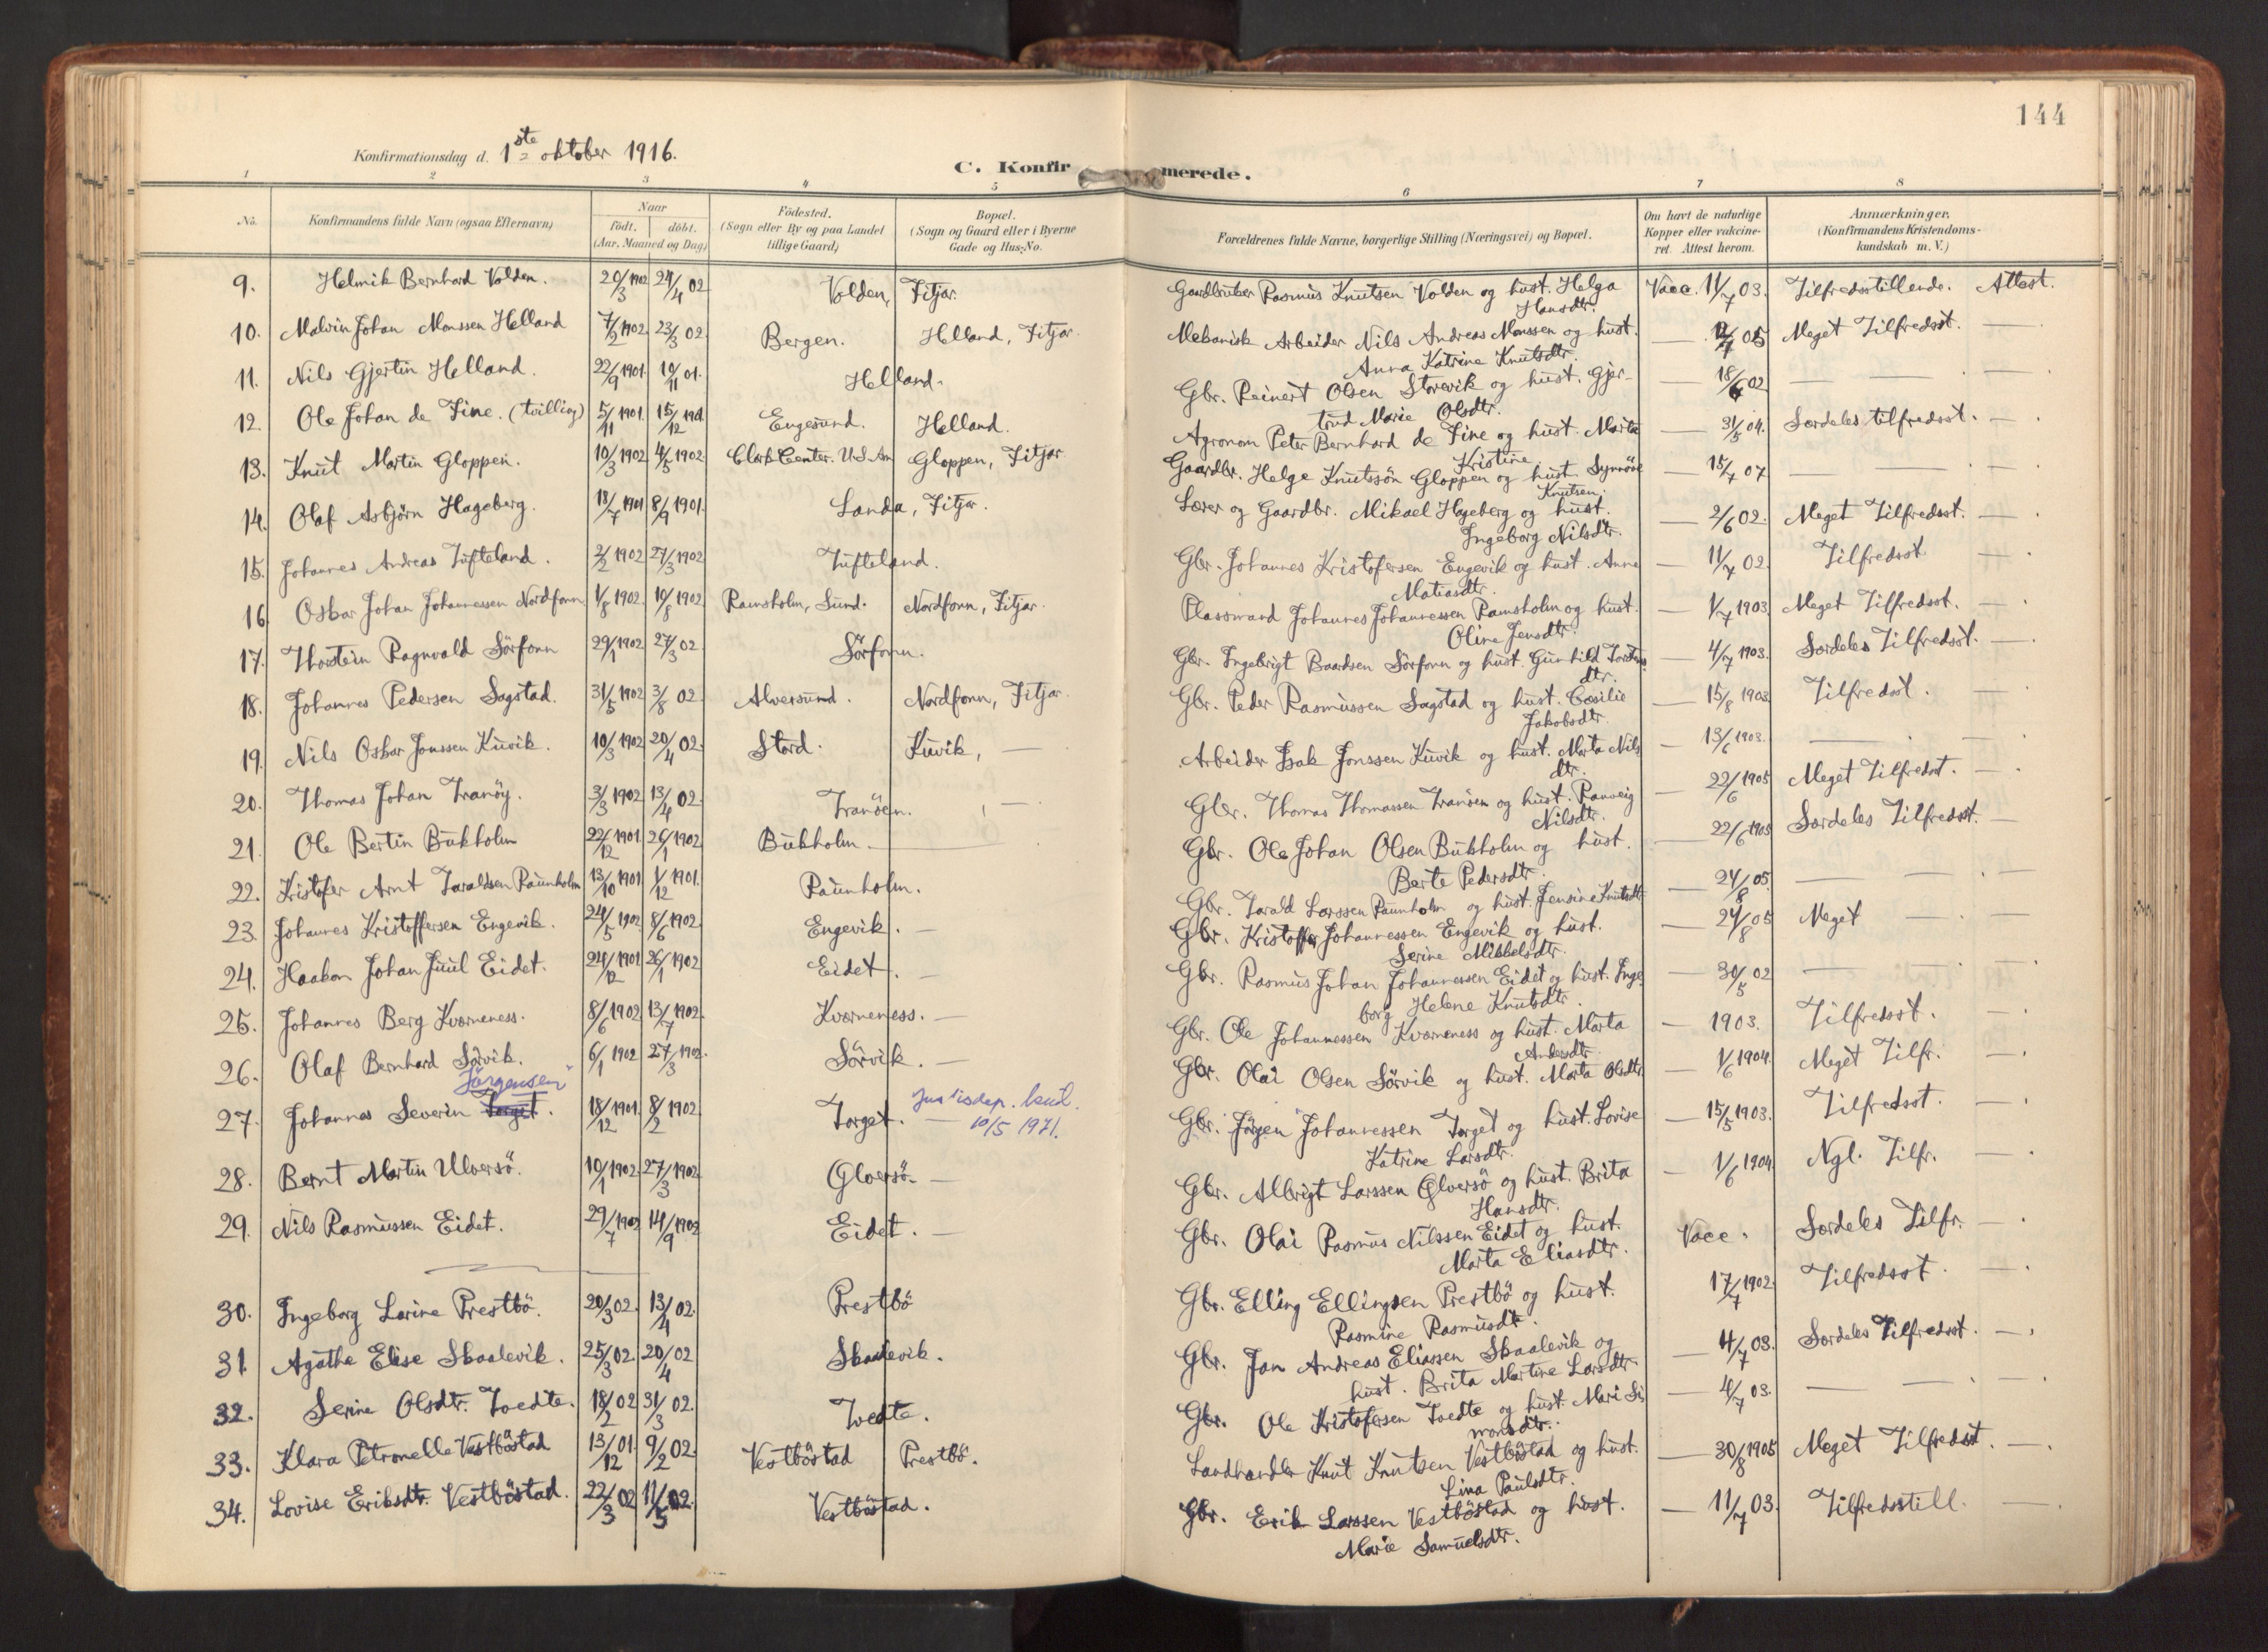 144
Konfirmationsdag d. 1ste oktober 1916.
C. Konfirmerede.
1 2 3 4 5 6 7 8
No. Konfirmandens fulde Navn (ogsaa Efternavn) Naar födt. döbt. (Aar, Maaned og Dag) Födested. (Sogn eller By og paa Landet tillige Gaard) Bopæl. (Sogn og Gaard eller i Byerne Gade og Hus-No. Forældrenes fulde Navne, borgerlige Stilling (Næringsvei) og Bopæl. Om havt de naturlige Kopper eller vakcineret. Attest herom. Anmærkninger. (Konfirmandens Kristendomskundskab m. V.)
9. Helmik Bernhard Volden. 20/3 1902 24/4 02 Volden, Fitjar. Gaardbruker Rasmus Knutsen Volden og hust. Helga Vacc. 11/7 03. Tilfredsstillende. Attest.
Hansdtr.
10. Malvin Johan Monssen Helland 7/2 1902. 23/3 02. Bergen. Helland, Fitjar. Mekanisk Arbeider Nils Andreas Monssen og hust. — 05 Meget Tilfredsst. —
Anna Katrine Knutsdtr.
11. Nils Gjertin Helland. 22/9 1901. 10/11 01. Helland. Gbr. Reinert Olsen Storevik og hust. Gjer- — 18/6 02 — —
trud Marie Olsdtr.
12. Ole Johan de Fine. (tvilling) 5/11 1901. 15/12 1901. Engesund. Helland. Agronom Peter Bernhard de Fine og hust. Marta — 31/5 04. Særdeles tilfredsst. —
Kristine.
13. Knut Martin Gloppen. 10/3 1902 4/5 1902. Clark Center. U.S. Am Gloppen, Fitjar. Gaardbr. Helge Knutssön Gloppen og hust. Synnöve — 15/7 07 — —
Knutsen.
14. Olaf Asbjörn Hageberg. 18/7 1901 8/9 1901. Landa, Fitjar. Lærer og Gaardbr. Mikael Hageberg og hust. — 2/6 02. Meget Tilfredsst. —
Ingeborg Nilsdtr.
15. Johannes Andreas Tufteland. 2/2 1902 27/3 1902 Tufteland. Gbr. Johannes Kristofersen Engevik og hust. Anna — 11/7 02. Tilfredsst. —
Matiasdtr.
16. Oskar Johan Johannessen Nordfonn 1/8 1902. 10/8 1902. Ramsholm, Sund. Nordfonn, Fitjar. Plassmand Johannes Johannessen Ramsholm og hust. — 1/7 1903. Meget Tilfredsst. —
Oline Jensdtr.
17. Thorstein Ragnvald Sörfonn 29/1 1902 27/3 02 Sörfonn. Gbr. Ingebrigt Baardsen Sörfonn og hust. Gunhild Torstens — 4/7 1903. Særdeles Tilfredsst. —
dtr.
18. Johannes Pedersen Sagstad. 31/5 1902 3/8 02. Alversund. Nordfonn, Fitjar. Gbr. Peder Rasmussen Sagstad og hust. Cæsilie — 15/8 1903. Tilfredsst. —
Jakobsdtr.
19. Nils Oskar Jonssen Kuvik. 10/3 1902 20/4 02. Stord. Kuvik, — Arbeider Isak Jonssen Kuvik og hust. Marta Nils — 13/6 1903. — —
dtr.
20. Thomas Johan Tranöy. 3/3 1902 13/4 02. Tranöen. — Gbr. Thomas Thomassen Tranöen og hust. Ranveig — 22/6 1905 Meget Tilfredsst. —
Nilsdtr.
21. Ole Bertin Bukholm 22/12 1901. 26/1 1902 Bukholm. — Gbr. Ole Johan Olsen Bukholm og hust. — 22/6 1905 Særdeles Tilfredsst. —
Berte Pedersdtr.
22. Kristofer Arnt Taraldsen Raunholm 13/10 1901 1/12 1901. Raunholm. Gbr. Tarald Larssen Raunholm og hust. Jensine Knutsdtr — 24/8 05. — —
23. Johannes Kristoffersen Engevik. 24/5 1902 8/6 1902. Engevik. — Gbr. Kristoffer Johannessen Engevik og hust. — 24/8 05 Meget — —
Serine Mikkelsdtr.
24. Haakon Johan Juul Eidet. 24/12 1901 26/1 1902 Eidet. — Gbr. Rasmus Johan Johannessen Eidet og hust. Inge — 30/5 02 — —
borg Helene Knutsdtr.
25. Johannes Berg Kvorneness. 8/6 1902 13/7 1902. Kvorneness. — Gbr. Ole Johannessen Kvorneness og hust. Marta — 1903. Tilfredsst. —
Andersdtr.
26. Olaf Bernhard Sörvik. 6/1 1902 27/3 1902. Sörvik. — Gbr. Olai Olsen Sörvik og hust. Marta Olsdtr — 1/6 1904. Meget Tilfr. —
Jørgensen
27. Johannes Severin Torget. 18/12 1901. 8/2 1902. Torget. — Justisdep. kul. 10/5 1971. Gbr. Jörgen Johannessen Torget og hust. Lovise — 15/5 1903. Tilfredsst. —
Katrine Larsdtr.
28. Bernt Martin Ulversö. 10/1 1902 27/3 1902. Ølversö. — Gbr. Albrigt Larssen Ølversö og hust. Brita — 1/6 1904. Ngl. Tilfr. —
Hansdtr.
29. Nils Rasmussen Eidet. 29/7 1902 14/9 1902 Eidet. — Gbr. Olai Rasmus Nilssen Eidet og hust. Vacc. Særdeles Tilfr. —
Marta Eliasdtr.
30. Ingeborg Larine Prestbö. 20/3 02. 13/4 02. Prestbö Gbr. Elling Ellingsen Prestbö og hust. 17/7 1902. Tilfredsst. —
Rasmine Rasmusdtr.
31. Agathe Elise Skaalevik. 25/3 02. 20/4 02 Skaalevik. Gbr. Jan Andreas Eliassen Skaalevik og — 4/7 03. Særdeles Tilfredsst. —
hust. Brita Martine Larsdtr.
32. Serine Olsdtr. Tvedte. 18/2 02 31/3 02. Tvedte. Gbr. Ole Kristofersen Tvedte og hust. Mari Si — 4/7 03. — —
monsdtr.
33. Klara Petronelle Vestböstad 13/12 01. 9/2 02. Vestböstad Prestbö. Landhandler Knut Knutsen Vestböstad og hust. — 30/8 1905 Meget Tilfredsst. —
Lina Paulsdtr.
34. Lovise Eriksdtr. Vestböstad. 22/3 02 11/5 02. Vestböstad. Gbr. Erik Larssen Vestböstad og hust. — 11/7 03. Tilfredsstill. —
Marie Samuelsdtr.